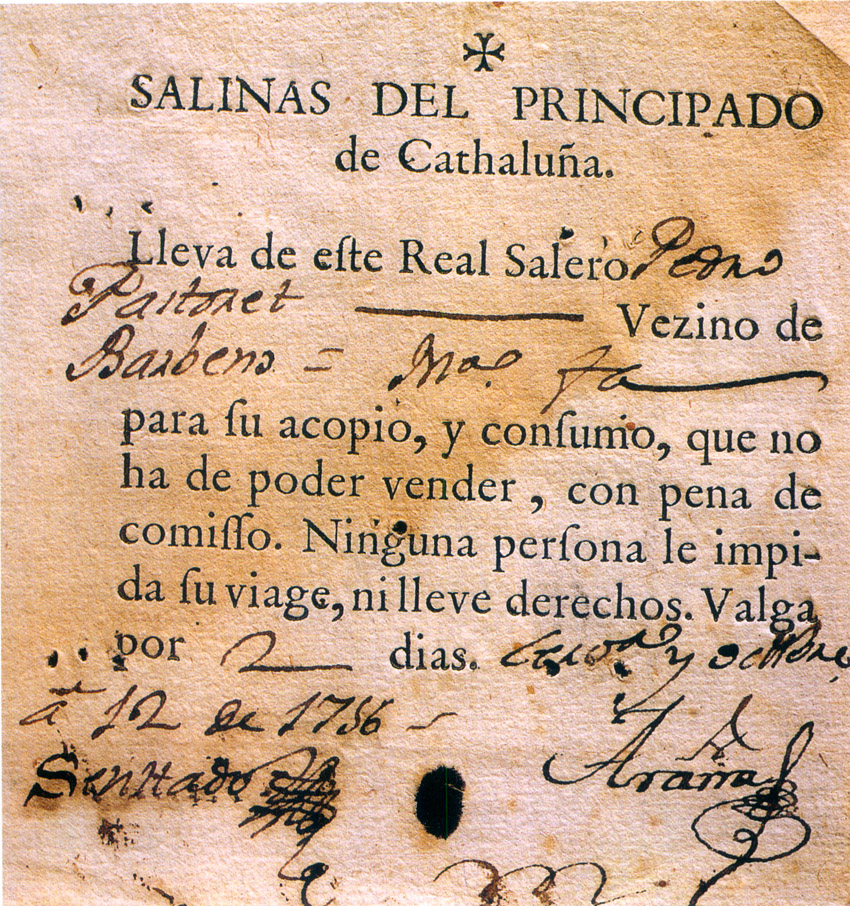 SALINAS DEL PRINCIPADO
de Cathaluña.
Lleva de eſte Real Salero Pedro
Pastoret Vezino de
Barbens =
para ſu acopio, y conſumo, que no
ha de poder vender, con pena de
comiſſo. Ninguna perſona le impi-
da ſu viage, ni lleve derechos. Valga
por 2 dias. y octtbre
à 12 de 1756
Senttado
Arana